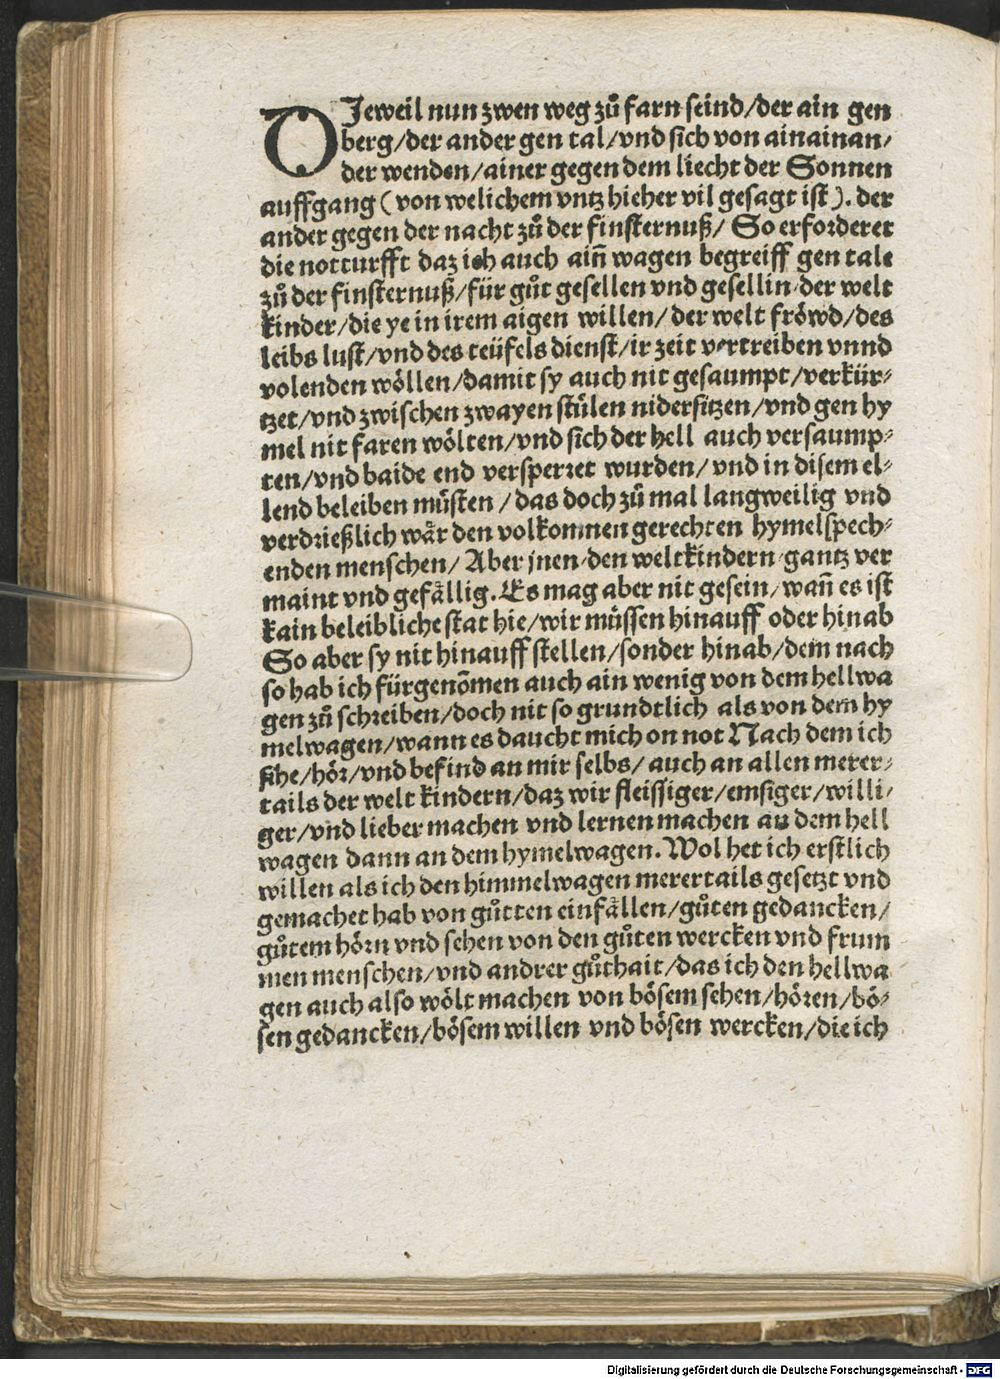 DJeweil nun zwen weg zů farn seind/der ain gen
berg/der ander gen tal/vnd sich von ainainan/
der wenden/ainer gegen dem liecht der Sonnen
auffgang (von welichem vntz hieher vil gesagt ist). der
ander gegen der nacht zů der finsternuß/ So erforderet
die notturfft daz ich auch aiñ wagen begreiff gen tale
zů der finsternuß/für gůt gesellen vnd gesellin der welt
kinder/die ye in irem aigen willen/der welt fröwd/des
leibs lust/vnd des teüfels dienst/ir zeit vertreiben vnnd
volenden wöllen/damit sy auch nit gesaumpt/verkür⸗
tzet/vnd zwischen zwayen stůlen nidersitzen/vnd gen hy
mel nit faren wölten/vnd sich der hell auch versaump⸗
ten/vnd baide end versperret wurden/vnd in disem el⸗
lend beleiben můsten/das doch zů mal langweilig vnd
verdrießlich wår den volkomnen gerechten hymelspech⸗
enden menschen/ Aber jnen den weltkindern gantz ver
maint vnd gefållig. Es mag aber nit gesein/wañ es ist
kain beleibliche stat hie/wir müssen hinauff oder hinab
So aber sy nit hinauff stellen/sonder hinab/dem nach
so hab ich fürgenōmen auch ain wenig von dem hellwa
gen zů schreiben/doch nit so grundtlich als von dem hy
melwagen/wann es daucht mich on not Nach dem ich
sihe/hör/vnd befind an mir selbs/auch an allen merer⸗
tails der welt kindern/daz wir fleissiger/emsiger/willi/
ger/vnd lieber machen vnd lernen machen an dem hell
wagen dann an dem hymelwagen. Wol het ich erstlich
willen als ich den himmelwagen merertails gesetzt vnd
gemachet hab von gůtten einfållen/gůten gedancken/
gůtem hörn vnd sehen von den gůten wercken vnd frum
men menschen/vnd andrer gůthait/das ich den hellwa
gen auch also wölt machen von bösem sehen/hören/bö⸗
sen gedancken/bösem willen vnd bösen wercken/die ich
Digitalisierung gefördert durch die Deutsche Forschungsgemeinschaft - DFG